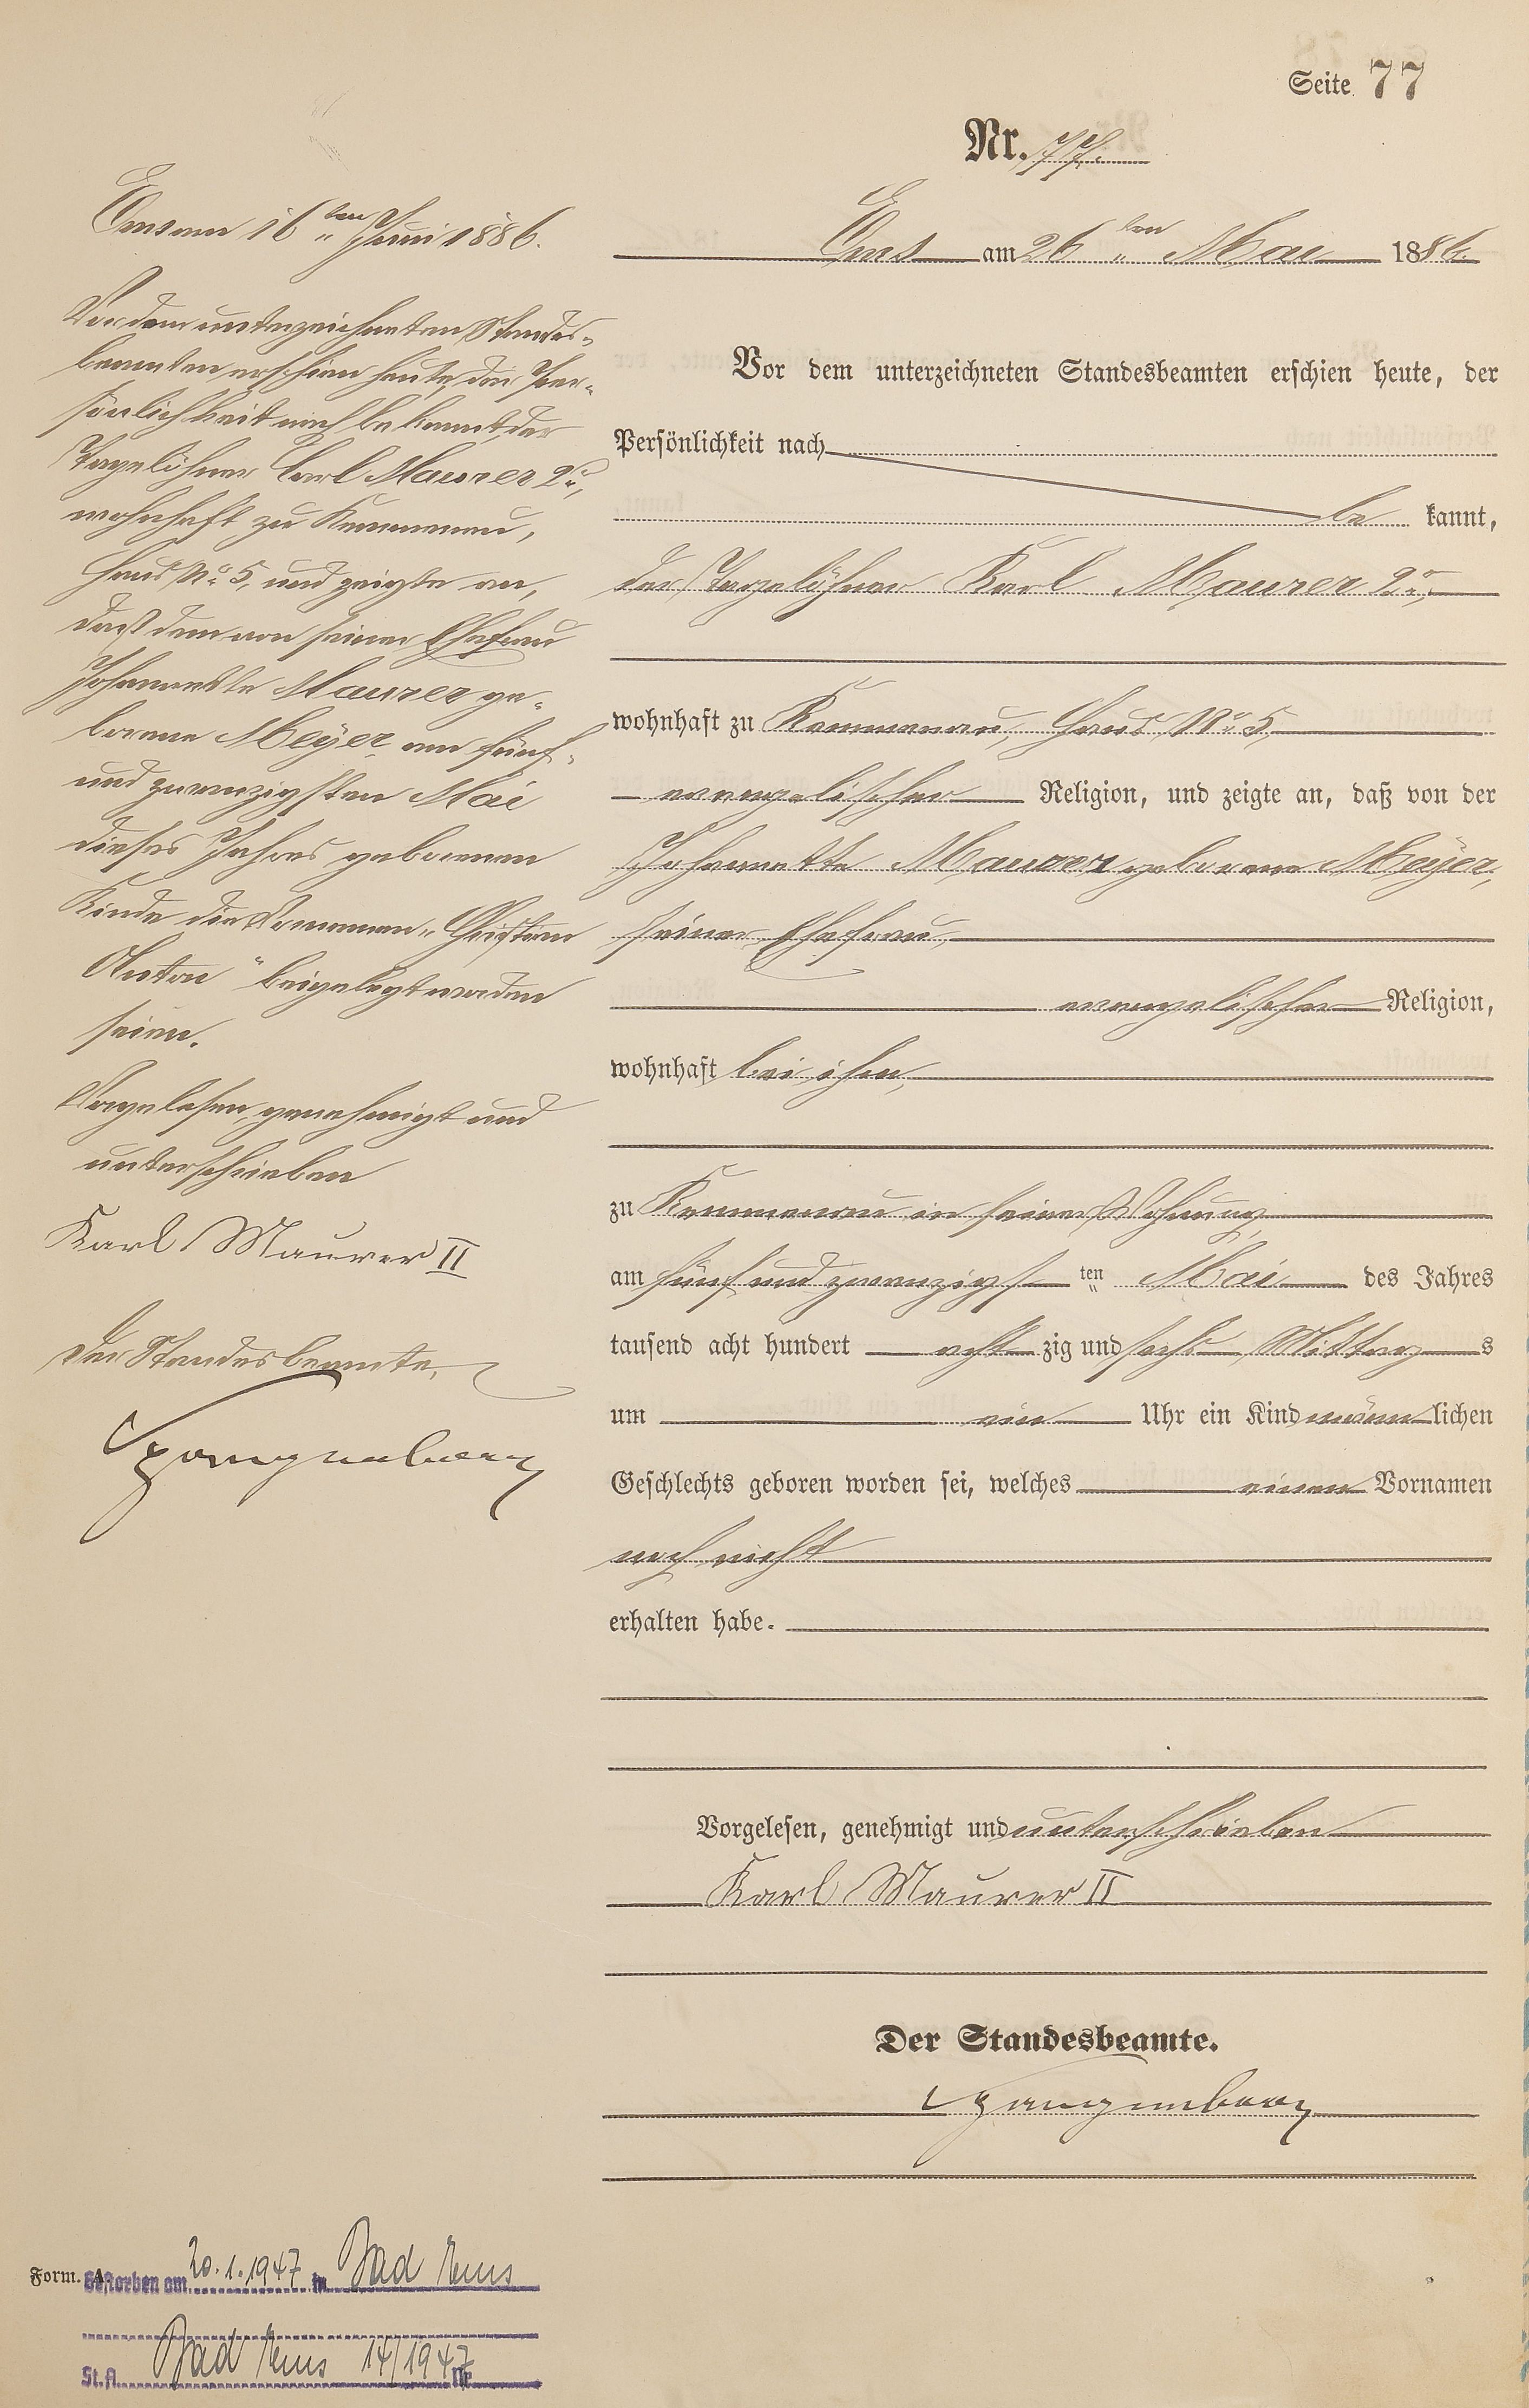 Seite 77
Nr. 77.
Ems am 26ten Mai 1886.
Vor dem unterzeichneten Standesbeamten erschien heute, der
Persönlichkeit nach
be kannt,
der Tagelöhner Karl Maurer 2r,
wohnhaft zu Kemmenau, Haus No 5,
evangelischer Religion, und zeigte an, daß von der
Johannette Maurer geborene Meyer,
seiner Ehefrau,
evangelischer Religion,
wohnhaft bei ihm,
zu Kemmenau in seiner Wohnung,
am fünf und zwanzigsten Mai des Jahres
tausend acht hundert acht zig und sechs Mittags
um ein Uhr ein Kind männlichen
Geschlechts geboren worden sei, welches einen Vornamen
noch nicht
erhalten habe.
Vorgelesen, genehmigt und unterschrieben
Karl Maurer II
Der Standesbeamte.
Ems am 16ten Juni 1886.
Vor dem unterzeichneten Standes-
beamten erschien heute, der Per-
sönlichkeit nach bekannt, der
Tagelöhner Carl Maurer 2r,
wohnhaft zu Kemmenau,
Haus No 5, und zeigte an,
daß dem von seiner Ehefrau
Johannette Maurer ge-
borene Meyer am fünf-
und zwanzigsten Mai
dieses Jahres geborenen
Kinde die Vornamen „Christian
Anton" beigelegt worden
seien.
Vorgelesen, genehmigt und
unterschrieben
Karl Maurer II
Der Standesbeamte,
Form. A.
Gestorben am 20.1.1947 in Bad Ems
St.A. Bad Ems 14/1947 Nr.